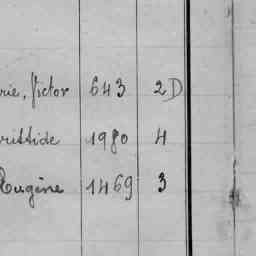 rie, Victor 643 2D
ristide 1980 4
Eugène 1469 3